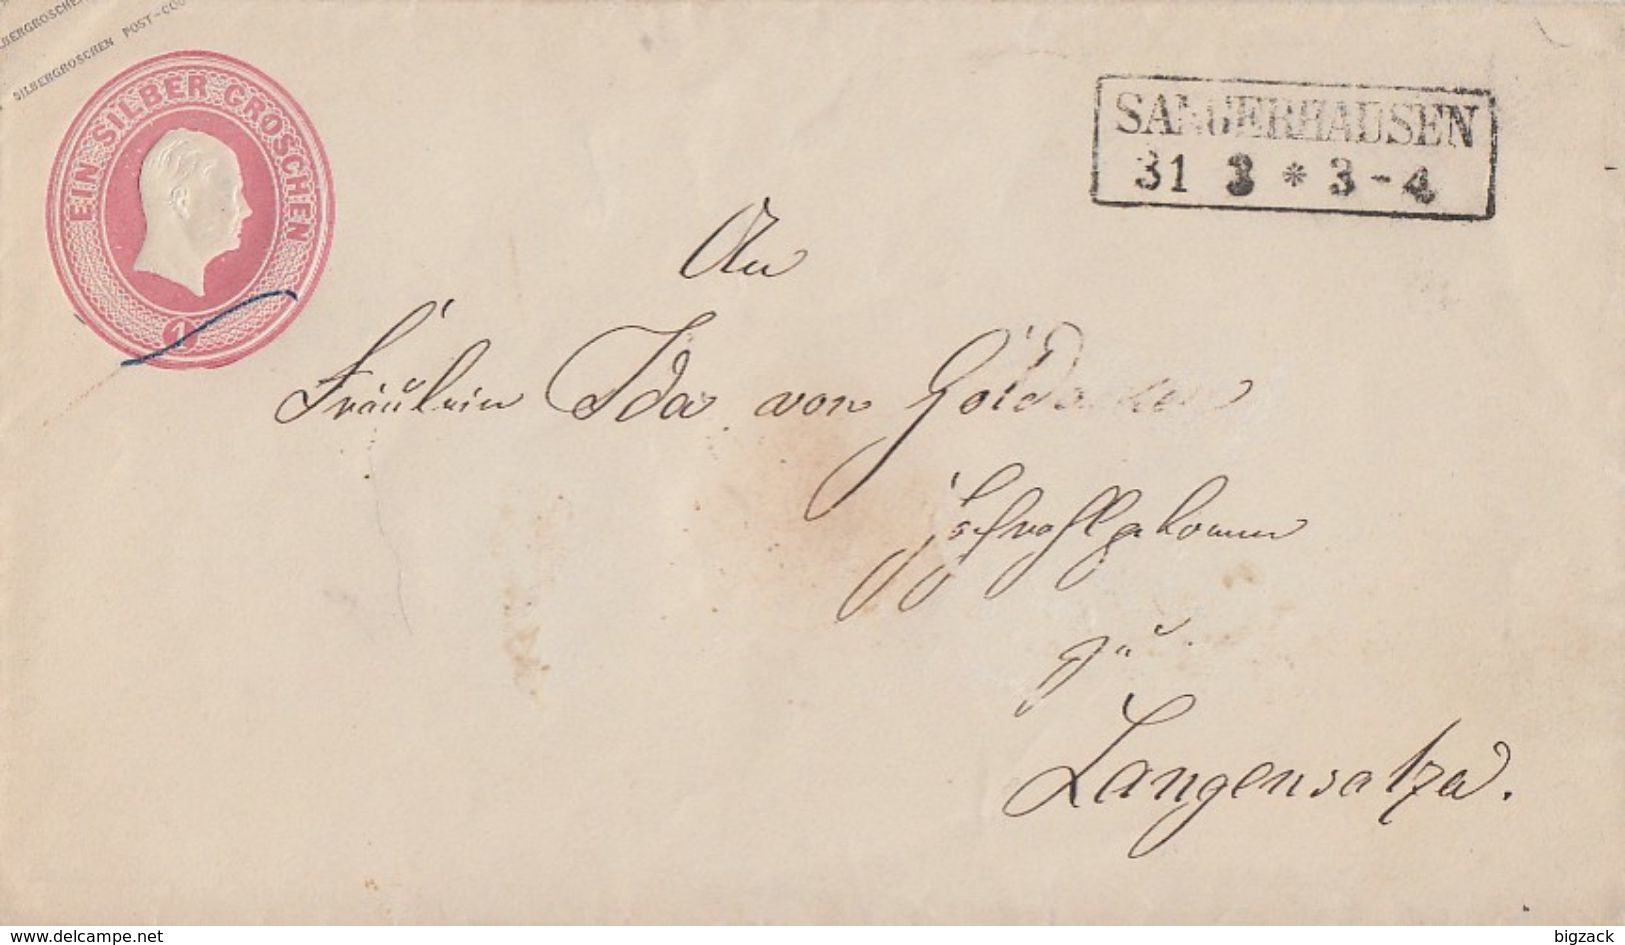 SILBERGROSCHEN
SILBERGROSCHEN POST-COU
EIN SILBER GROSCHEN
1
SANGERHAUSEN
31 3 * 3-4
An
Fräulein Ida von
Hochwohlgeboren
zu
Langensalza.
www.delcampe.net
bigzack